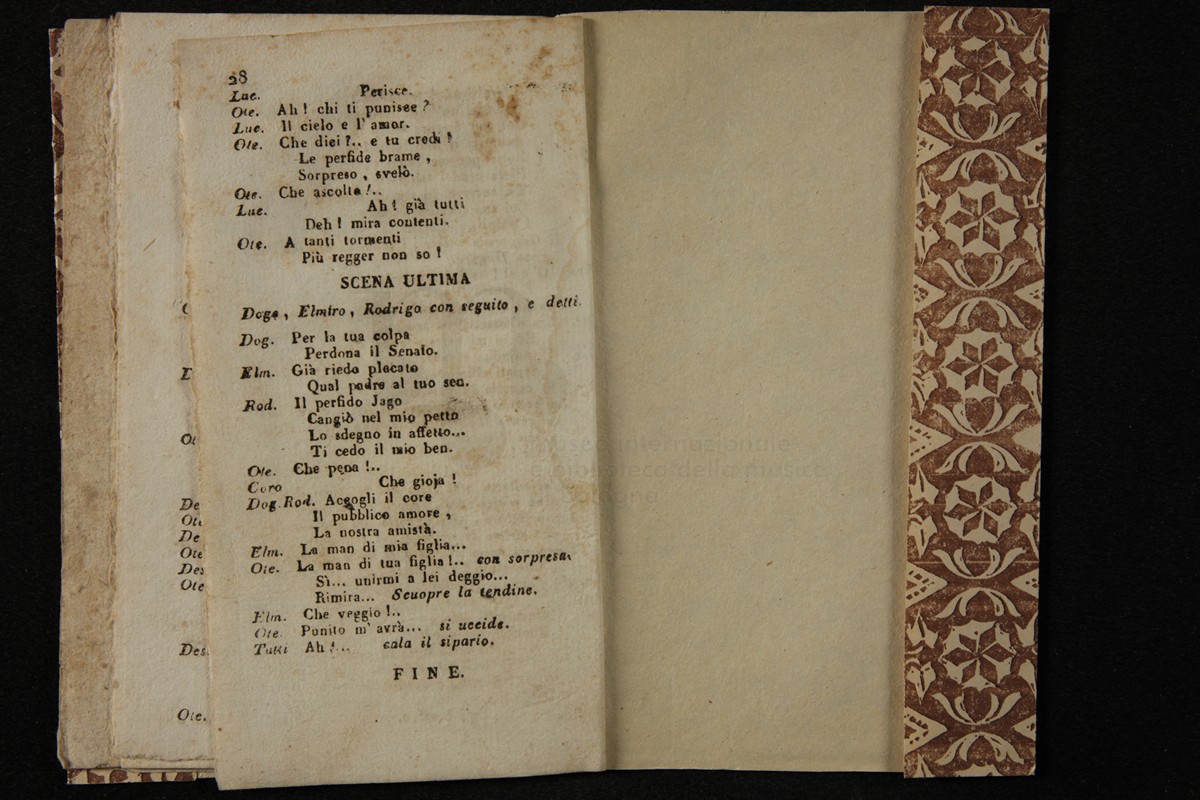 28
Luc. Perisce.
Ote. Ah! chi ti punisce?
Luc. Il cielo e l'amor.
Ote. Che dici?.. e tu credi?
Le perfide brame,
Sorpreso, svelò.
Ote. Che ascolto!..
Luc. Ah! già tutti
Deh! mira contenti.
Ote. A tanti tormenti
Più regger non so!
SCENA ULTIMA
Doge, Elmiro, Rodrigo con seguito, e detti.
Dog. Per la tua colpa
Perdona il Senato.
Elm. Già riedo placato
Qual padre al tuo sen.
Rod. Il perfido Jago
Cangiò nel mio petto
Lo sdegno in affetto...
Ti cedo il mio ben.
Ote. Che pena!..
Coro Che gioja!
Dog. Rod. Accogli il core
Il pubblico amore,
La nostra amistà.
Elm. La man di mia figlia...
Ote. La man di tua figlia!.. con sorpresa.
Sì... unirmi a lei deggio...
Rimira... Scuopre la tendine.
Elm. Che veggio!..
Ote. Punito m'avrà... si uccide.
Tutti Ah!... cala il sipario.
FINE.
De
Ote
De
Ote
Des
Ote
Des.
Ote.
Museo internazionale
e biblioteca della musica
di Bologna